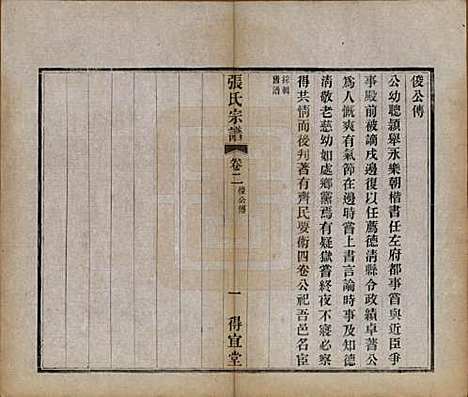 俊公傳
公幼聰穎舉永樂朝楷書任左府都事嘗與近臣爭
事殿前被謫戍邊復以任薦德清縣令政績卓著公
為人慨爽有氣節在邊時嘗上書言論時事及知德
清敬老慈幼如處鄉黨焉有疑獄嘗終夜不寢必察
得其情而後判著有齊民要術四卷公祀吾邑名臣
採輯
舊譜
張氏宗譜
卷二
俊公傳
一
得宜堂